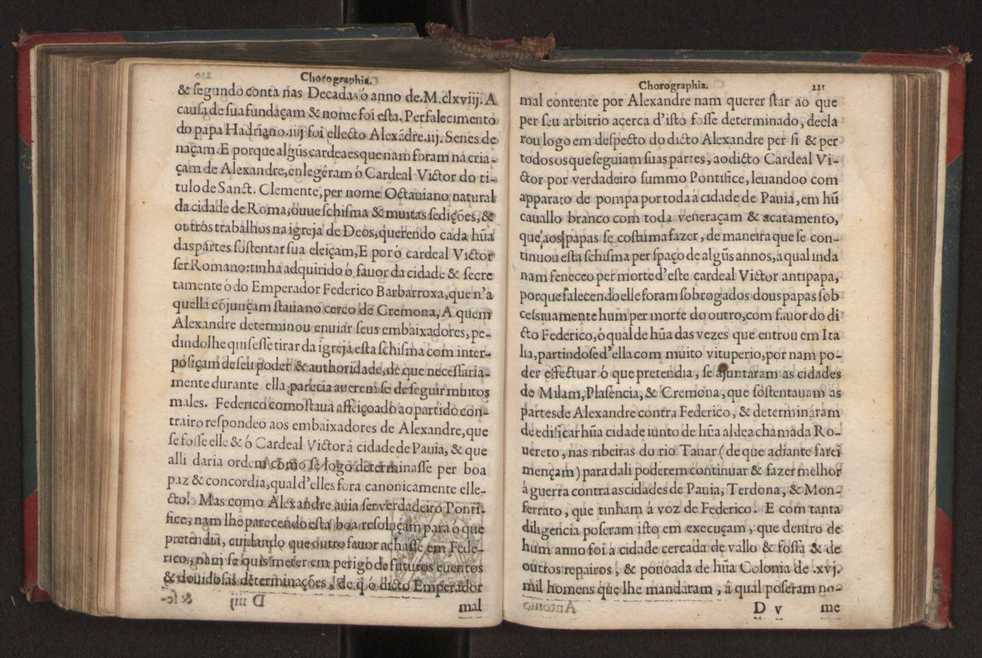 Chorographia.
& segundo conta nas Decadas ó anno de.M.clxviij. A
causa de sua fundaçam & nome foi esta. Per falecimento
do papa Hadriano.iiij foi ellecto Alexãdre.iij. Senes de
naçam. E porque algũs cardeaes que nam foram na cria-
çam de Alexandre, enlegèram ó Cardeal Victor do ti-
tulo de Sanct. Clemente, per nome Octauiano natural
da cidade de Roma, óuue schisma & muitas sedições, &
outros trabalhos na igreja de Deos, querendo cada hũa
das partes sostentar sua eleiçam, E por ó cardeal Victor
ser Romano: tinha adquirido ó fauor da cidade & secre
tamente ó do Emperador Federico Barbarroxa, que n'a
quella cõjunçam staua no cerco de Cremona, A quem
Alexandre determinou enuiar seus embaixadores, pe-
dindolhe quisesse tirar da igreja esta schisma com inter-
posiçam de seu poder & authoridade, de que necessaria-
mente durante ella, parecia auerem se de seguir muitos
males. Federico como staua affeiçoado ao partido con-
trairo respondeo aos embaixadores de Alexandre, que
se fosse elle & ó Cardeal Victor á cidade de Pauia, & que
alli daria ordem como se logo determinasse per boa
paz & concordia, qual d'elles fora canonicamente elle-
cto. Mas como Alexandre auia ser verdadeiro Ponti-
fice, nam lhe parecendo esta boa resoluçam para o que
pretendia, cuidando que outro fauor achasse em Fede-
rico, nam se quis meter em perigo de futuros euentos
& douidosas determinações, de q̃ ó dicto Emperador
D iiij
mal
Chorographia.
mal contente por Alexandre nam querer star ao que
per seu arbitrio açerca d'isto fosse determinado, decla
rou logo em despecto do dicto Alexandre per si & per
todos os que seguiam suas partes, ao dicto Cardeal Vi-
ctor por verdadeiro summo Pontifice, leuandoo com
apparato de pompa por toda a cidade de Pauia, em hũ
cauallo branco com toda veneraçam & acatamento,
que aos papas se costuma fazer, de maneira que se con-
tinuou esta schisma per spaço de algũs annos, a qual inda
nam feneceo per morte d'este cardeal Victor antipapa,
porque falecendo elle foram sobrogados dous papas sob
cessiuamente hum per morte do outro, com fauor do di
cto Federico, ó qual de hũa das vezes que entrou em Ita
lia, partindose d'ella com muito vituperio, por nam po-
der effectuar ó que pretendia, se ajuntaram as cidades
de Milam, Plasencia, & Cremona, que sostentauam as
partes de Alexandre contra Federico, & determináram
de edificar hũa cidade iunto de hũa aldea chamada Ro-
uereto, nas ribeiras do rio Tanar (de que adiante farei
mençam) para dali poderem continuar & fazer melhor
á guerra contra as cidades de Pauia, Terdona, & Mon-
ferrato, que tinham á voz de Federico. E com tanta
diligencia poseram isto em execuçam, que dentro de
hum anno foi á cidade cercada de vallo & fossa & de
outros repairos, & pouoada de hũa Colonia de .xvj.
mil homens que lhe mandaram, á qual poseram no-
D v
me